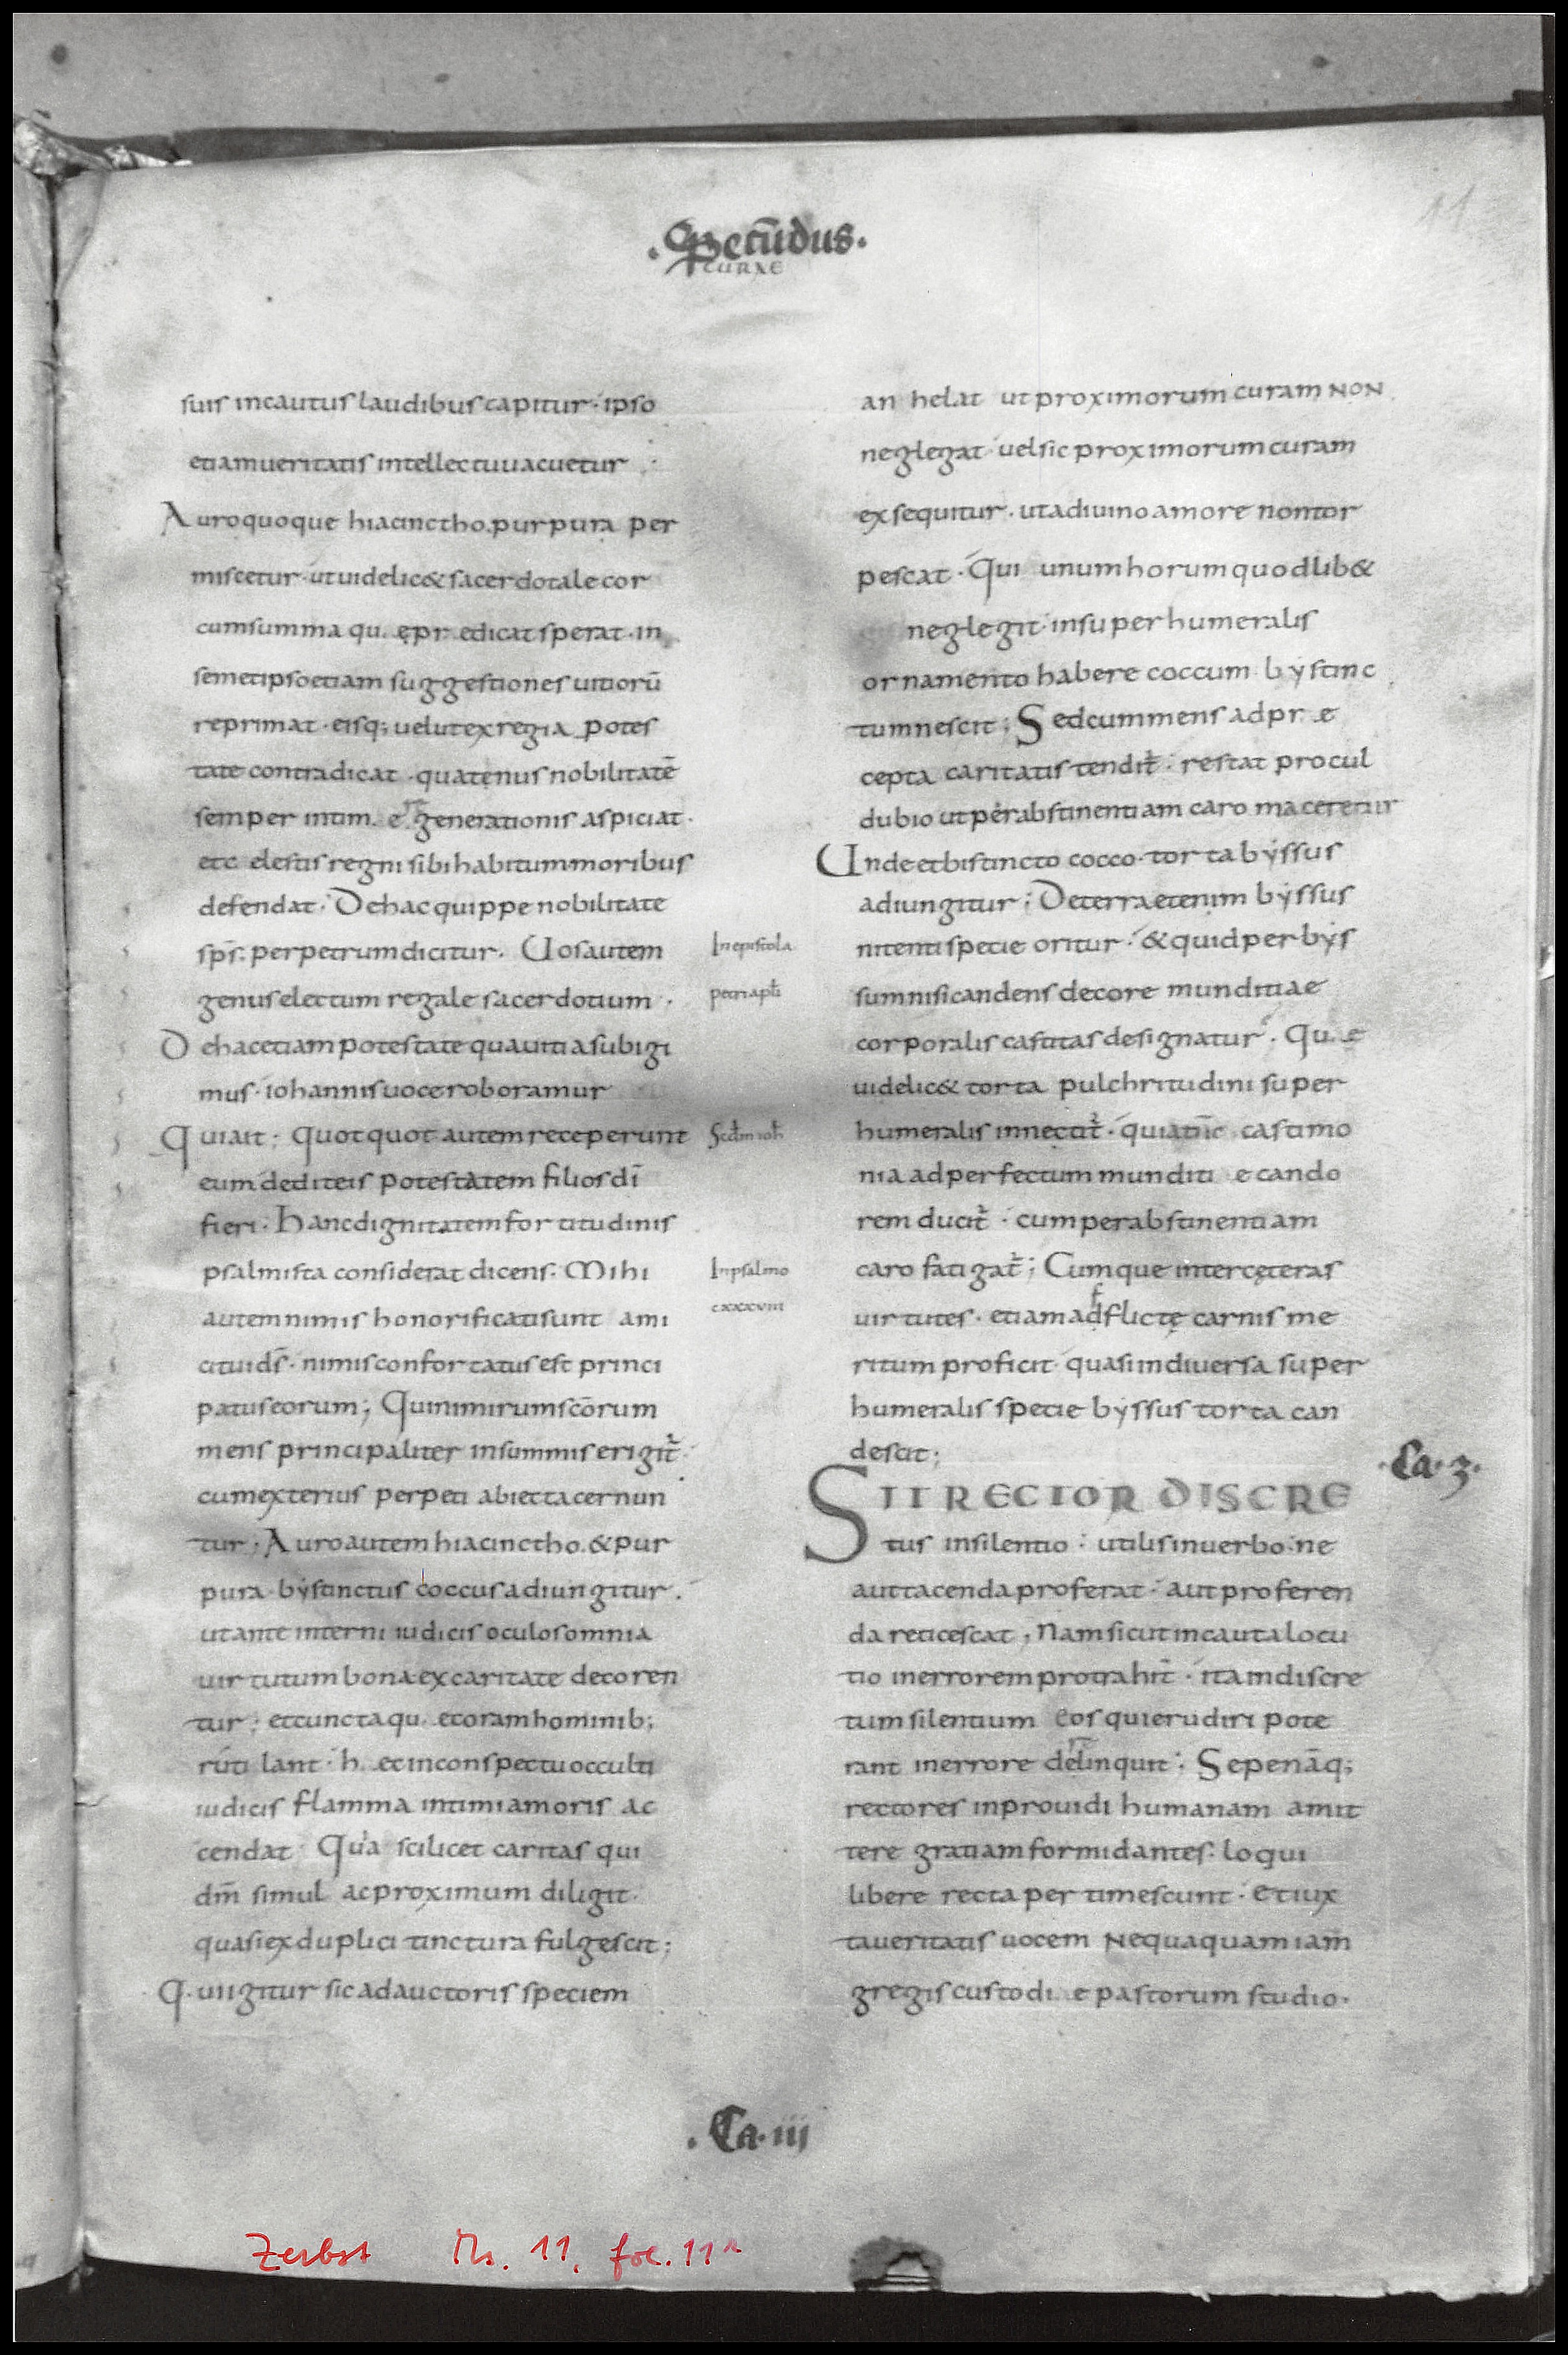 .Secūdus.
CURAE
11
suis incautus laudibus capitur· ipso
etiam ueritatis intellectu uacuetur
Auro quoque hiacinctho. purpura per
miscetur· ut uidelic& sacerdotale cor
cum summa qu ę pr edicat sperat· in
semetipso etiam suggestiones uitiorū
reprimat· eisq; uelut ex regia potes
tate contradicat· quatenus nobilitatē
semper intim e generationis aspiciat·
et c elestis regni sibi habitum moribus
defendat· De hac quippe nobilitate
sp̄s· per petrum dicitur· Uos autem
genus electum regale sacerdotium·
De hac etiam potestate qua uitia subigi
mus· iohannis uoce roboramur
Qui ait; Quotquot autem receperunt
eum dedit eis potestatem filios dī
fieri· Hanc dignitatem fortitudinis
psalmista considerat dicens· Mihi
autem nimis honorificati sunt ami
ci tui d̄s· nimis confortatus est princi
patus eorum; Qui nimirum sc̄orum
mens principaliter in summis erigit̄·
cum exterius perpeti abiecta cernun
tur; Auro autem hiacinctho. & pur
pura· bystinctus coccus adiungitur·
ut ante interni iudicis oculos omnia
uirtutum bona ex caritate decoren
tur; et cuncta qu e coram hominib;
rutilant· h ec in conspectu occulti
iudicis flamma intimi amoris ac
cendat· Qua scilicet caritas qui
dm̄ simul ac proximum diligit·
quasi ex duplici tinctura fulgescit;
Qui igitur sic ad auctoris speciem
In epistola
petri apłi
Scdm ioh
In psalmo
cxxxviii
anhelat ut proximorum curam NON
neglegat· uel sic proximorum curam
exsequitur· ut a diuino amore non tor
pescat· Qui unum horum quodlib&
neglegit· in superhumeralis
ornamento habere coccum bystinc
tum nescit; Sed cum mens ad pr e
cepta caritatis tendit̄· restat procul
dubio ut per abstinentiam caro maceretur
Unde et bistincto cocco· torta byssus
adiungitur; De terra etenim byssus
nitenti specie oritur· & quid per bys
sum nisi candens decore munditiae
corporalis castitas designatur· Qu e
uidelic& torta pulchritudini super
humeralis innectit̄· quia tūc castimo
nia ad perfectum munditi e cando
rem ducit̄· cum per abstinentiam
caro fatigat̄; Cumque inter cęteras
uirtutes· etiam adflictę carnis me
ritum proficit· quasi in diuersa super
humeralis specie byssus torta can
descit;
SIT RECTOR DISCRE
tus in silentio· utilis in uerbo· ne
aut tacenda proferat· aut proferen
da reticescat; Nam sicut incauta locu
tio in errorem protrahit̄· ita indiscre
tum silentium eos qui erudiri pote
rant in errore delinquit· Sepe nāq;
rectores inprouidi humanam amit
tere gratiam formidantes· loqui
libere recta pertimescunt· et iux
ta ueritatis uocem Nequaquam iam
gregis custodi e pastorum studio·
·Ca·3·
.Ca·iij
Zerbst Ms. 11, fol. 11r